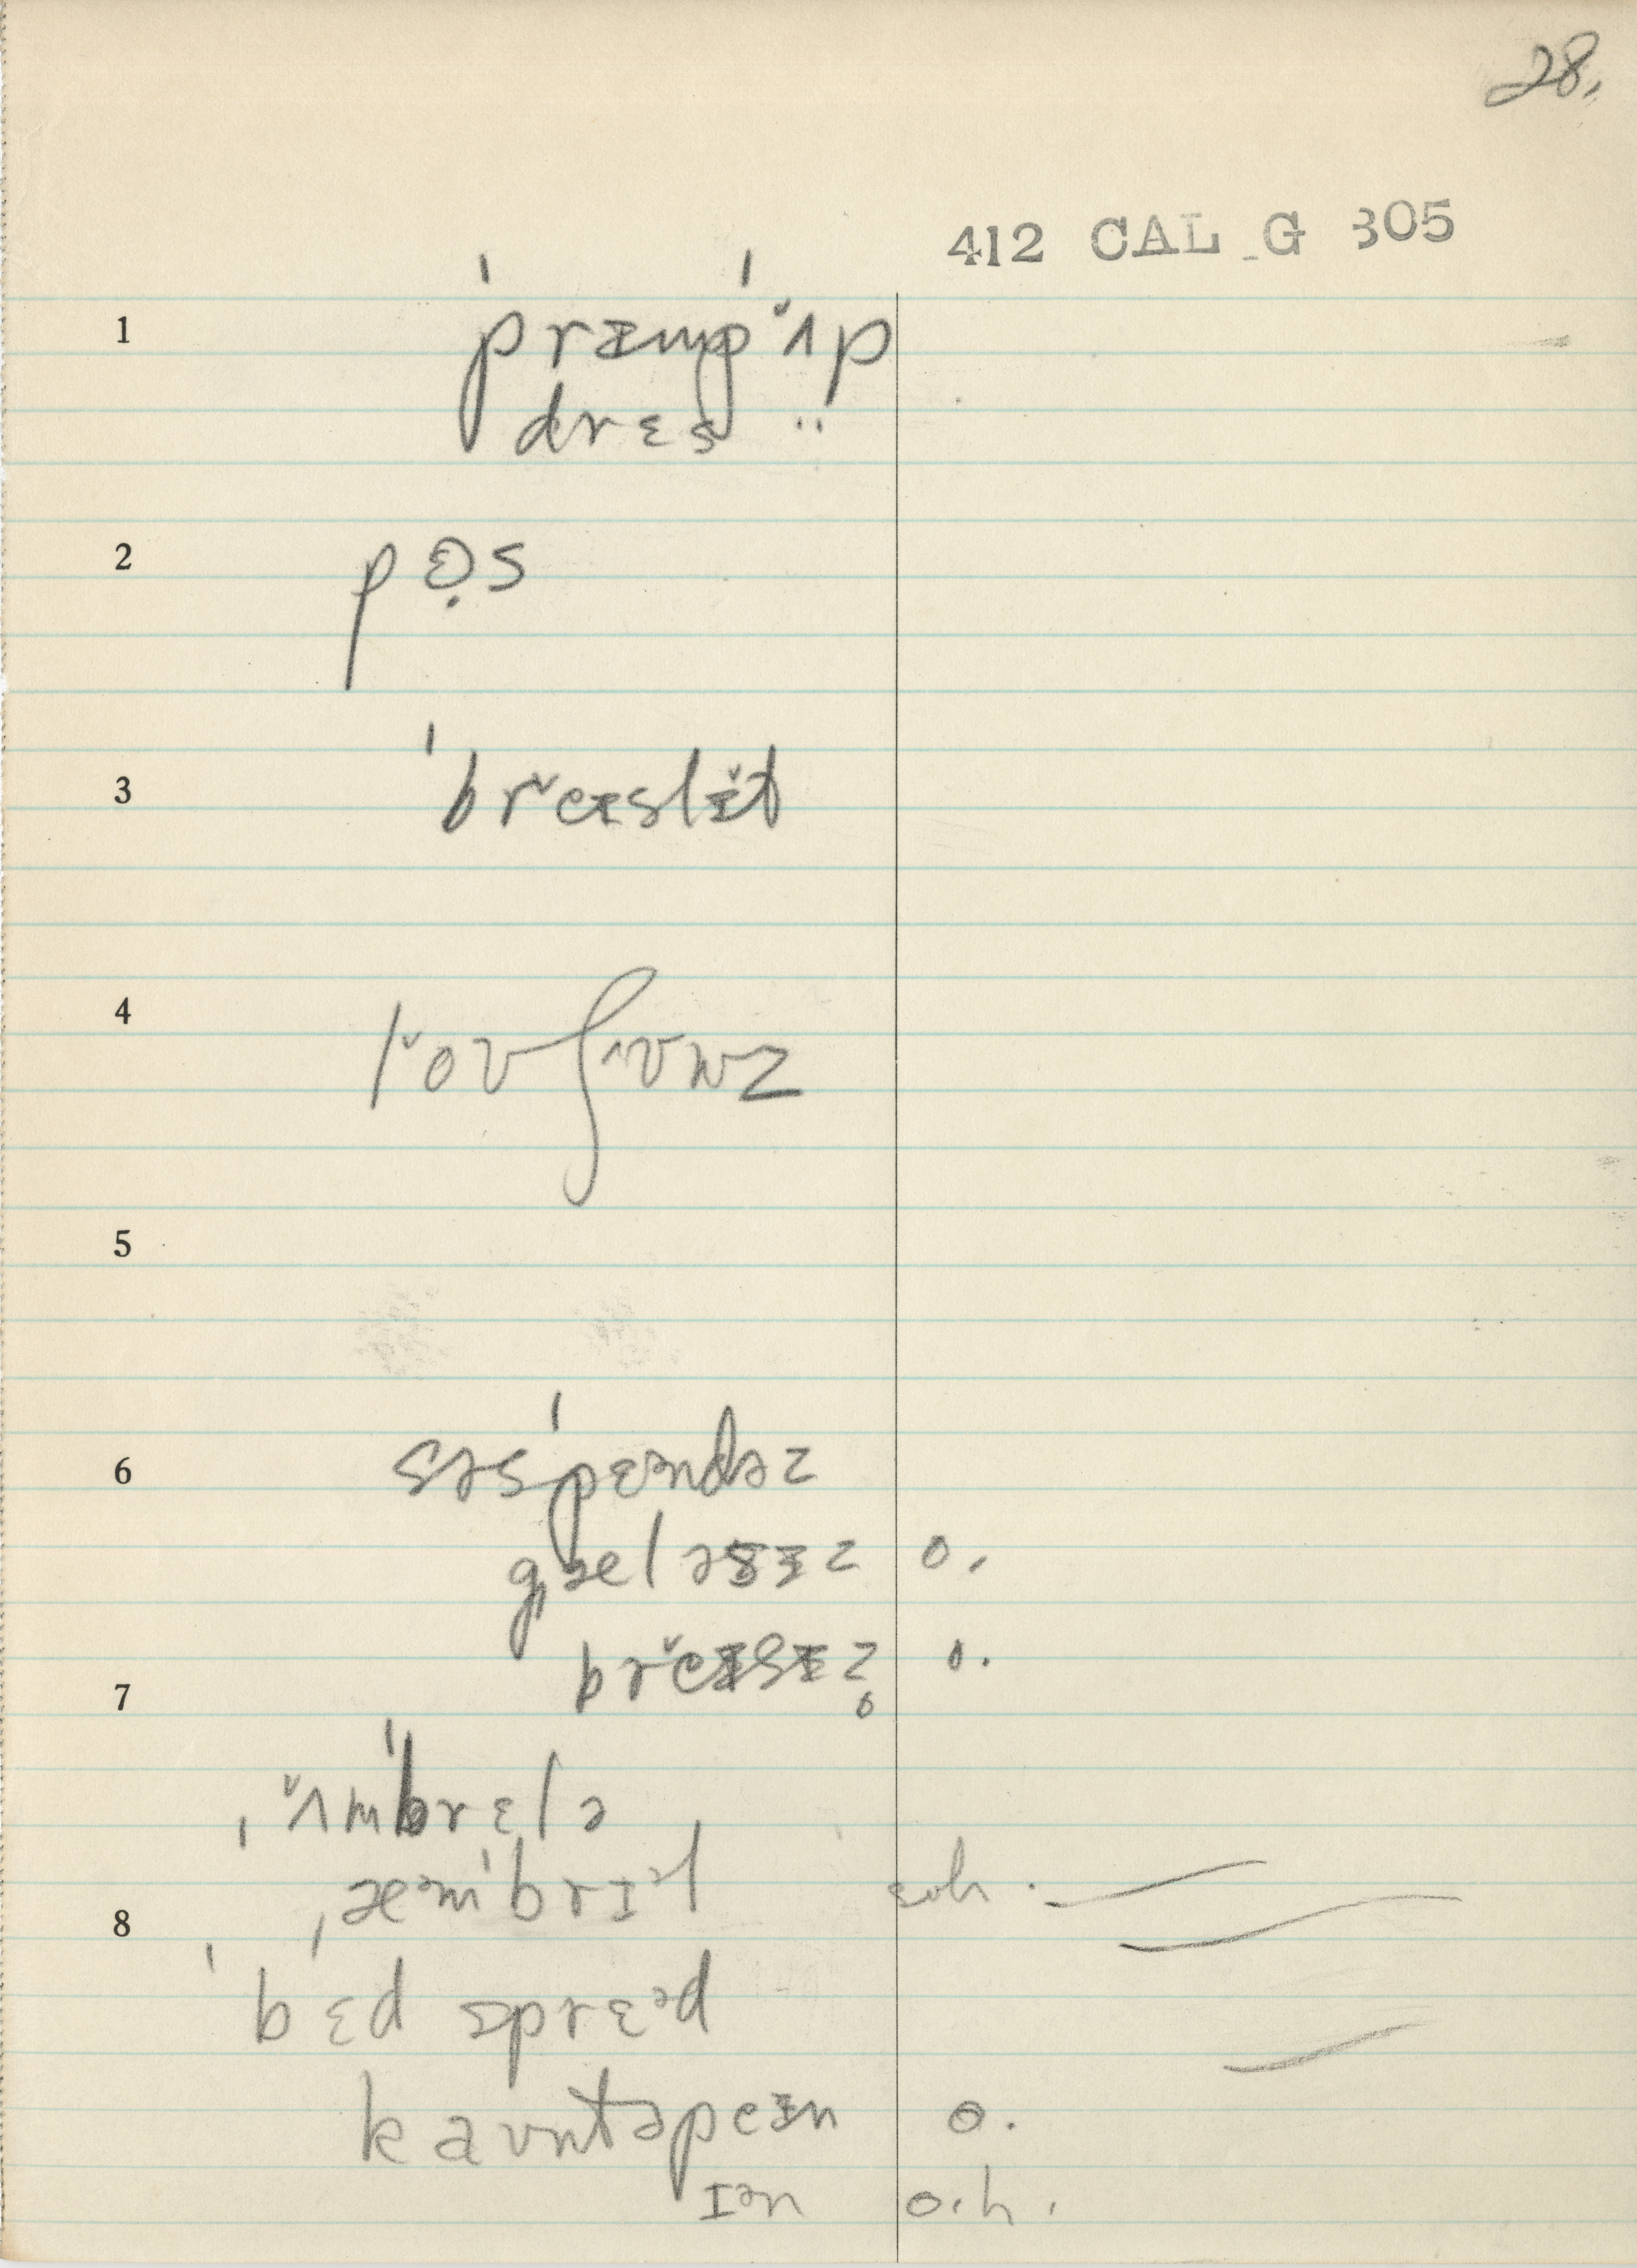 28.
412 CAL G 305
1 ˈprɪmpˈʌ̆p
drɛs ..
2 pɵ̣s
3 ˈbrĕɪslɪ̆t
4 lŏʊʃʌʊnz
5
6 səsˈpɛᵊndəz
gæləsɪz o.
7 brĕɪsɪz̥ o.
ˌʌ̆mˈbrɛlə
ˌæᵊmˈbrɪᵊl soh.
8 ˈbɛd sprɛᵊd
kaʊntəpeɪn o.
ɪᵊn o.h.